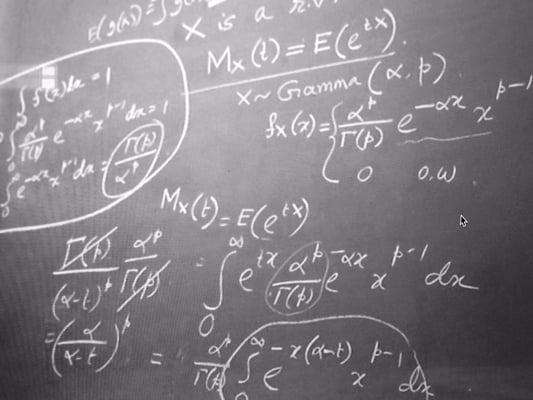 E(g(x)) = ∫ g(
X is a r.v.
M_X(t) = E(e^{tX}).
X ~ Gamma (α, p)
f_X(x) = { α^p/Γ(p) e^{-αx} x^{p-1}
0 0.w
∫ f(x)dx = 1
∫_0^∞ α^p/Γ(p) e^{-αx} x^{p-1} dx = 1
∫_0^∞ e^{-αx} x^{p-1} dx = Γ(p)/α^p
M_X(t) = E(e^{tX})
= ∫_0^∞ e^{tx} α^p/Γ(p) e^{-αx} x^{p-1} dx
= α^p/Γ(p) ∫_0^∞ e^{-x(α-t)} x^{p-1} dx
Γ(p)/(α-t)^p α^p/Γ(p)
= (α/(α-t))^p